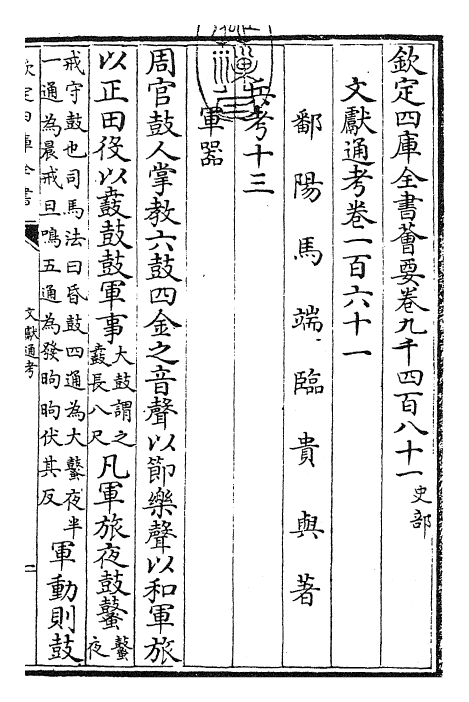 欽定四庫全書薈要卷九千四百八十一 史部
文獻通考卷一百六十一
鄱陽馬端臨貴與著
兵考十三
軍器
周官鼓人掌教六鼓四金之音聲以節樂聲以和軍旅
以正田役以鼖鼓鼓軍事大鼓謂之鼖長八尺凡軍旅夜鼓鼜鼜夜
戒守鼓也司馬法曰昏鼓四通為大鼜夜半一通為晨戒旦鳴五通為發昫昫伏其反軍動則鼓
欽定四庫全書
文獻通考
一